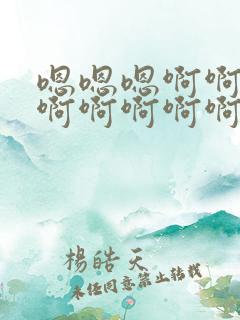 嗯嗯嗯啊啊
啊啊啊啊啊
楊皓天
未经同意禁止转载